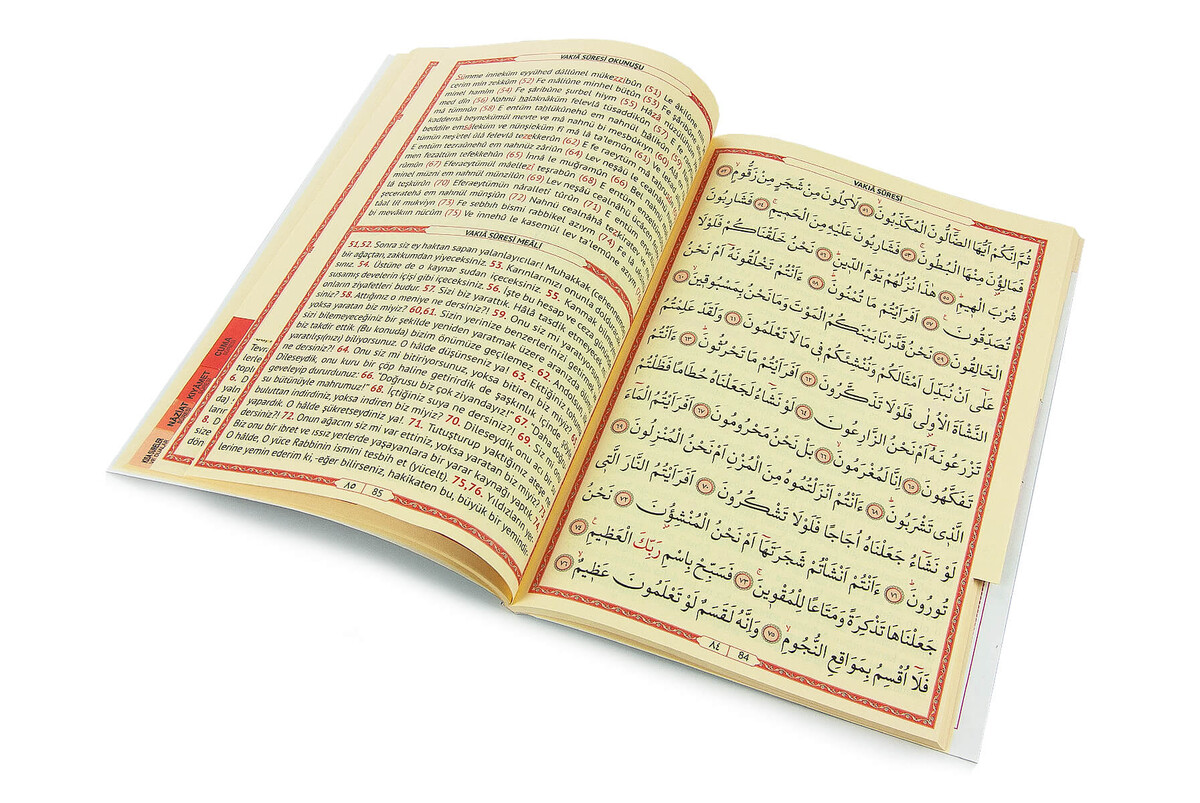 VAKIÂ SÛRESİ
ثُمَّ اِنَّكُمْ اَيُّهَا الضَّٓالُّونَ الْمُكَذِّبُونَۙ ٥١ لَاٰكِلُونَ مِنْ شَجَرٍ مِنْ زَقُّومٍۙ ٥٢
فَمَالِؤُنَ مِنْهَا الْبُطُونَۚ ٥٣ فَشَارِبُونَ عَلَيْهِ مِنَ الْحَمِيمِۚ ٥٤ فَشَارِبُونَ
شُرْبَ الْهِيمِۜ ٥٥ هٰذَا نُزُلُهُمْ يَوْمَ الدِّينِۜ ٥٦ نَحْنُ خَلَقْنَاكُمْ فَلَوْلَا
تُصَدِّقُونَ ٥٧ اَفَرَاَيْتُمْ مَا تُمْنُونَۜ ٥٨ ءَاَنْتُمْ تَخْلُقُونَهُٓ اَمْ نَحْنُ
الْخَالِقُونَ ٥٩ نَحْنُ قَدَّرْنَا بَيْنَكُمُ الْمَوْتَ وَمَا نَحْنُ بِمَسْبُوقِينَۙ ٦٠
عَلٰٓى اَنْ نُبَدِّلَ اَمْثَالَكُمْ وَنُنْشِئَكُمْ فِي مَا لَا تَعْلَمُونَ ٦١ وَلَقَدْ عَلِمْتُمُ
النَّشْاَةَ الْاُولٰى فَلَوْلَا تَذَكَّرُونَ ٦٢ اَفَرَاَيْتُمْ مَا تَحْرُثُونَۜ ٦٣ ءَاَنْتُمْ
تَزْرَعُونَهُٓ اَمْ نَحْنُ الزَّارِعُونَ ٦٤ لَوْ نَشَٓاءُ لَجَعَلْنَاهُ حُطَامًا فَظَلْتُمْ
تَفَكَّهُونَ ٦٥ اِنَّا لَمُغْرَمُونَۙ ٦٦ بَلْ نَحْنُ مَحْرُومُونَ ٦٧ اَفَرَاَيْتُمُ الْمَٓاءَ
الَّذِي تَشْرَبُونَۜ ٦٨ ءَاَنْتُمْ اَنْزَلْتُمُوهُ مِنَ الْمُزْنِ اَمْ نَحْنُ الْمُنْزِلُونَ ٦٩
لَوْ نَشَٓاءُ جَعَلْنَاهُ اُجَاجًا فَلَوْلَا تَشْكُرُونَ ٧٠ اَفَرَاَيْتُمُ النَّارَ الَّتِي
تُورُونَۜ ٧١ ءَاَنْتُمْ اَنْشَاْتُمْ شَجَرَتَهَٓا اَمْ نَحْنُ الْمُنْشِؤُنَ ٧٢ نَحْنُ
جَعَلْنَاهَا تَذْكِرَةً وَمَتَاعًا لِلْمُقْوِينَۚ ٧٣ فَسَبِّحْ بِاسْمِ رَبِّكَ الْعَظِيمِ ٧٤
فَلَٓا اُقْسِمُ بِمَوَاقِعِ النُّجُومِۙ ٧٥ وَاِنَّهُ لَقَسَمٌ لَوْ تَعْلَمُونَ عَظِيمٌۙ ٧٦
٨٤ 84
VAKIÂ SÛRESİ OKUNUŞU
Sümme inneküm eyyühed dâllûnel mükezzibûn (51) Le âkilûne
cerim min zekkûm (52) Fe mâliûne minhel bütûn (53) Fe şâribûne
minel hamîm (54) Fe şâribûne şurbel hiym (55) Hâzâ nüzülü
med dîn (56) Nahnü halaknâküm felevlâ tüsaddikûn (57) E fe
mâ tümnûn (58) E entüm tahlükûnehû em nahnül hâlikûn (59)
kaddernâ beynekümül mevte ve mâ nahnü bi mesbûkiyn (60) Alâ
beddile emsâleküm ve nünşieküm fi mâ lâ ta'lemûn (61) Ve leka
tümün neş'etel ûlâ felevlâ tezekkerûn (62) E fe raeytüm mâ
E entüm tezraûnehû em nahnüz zâriûn (64) Lev neşâü le cealnâ
men fezaltüm tefekkehûn (65) İnnâ le muğramûn (66) Bel na
rûmûn (67) Eferaeytümül mâellezî teşrabûn (68) E entüm enze
minel müzni em nahnül münzilûn (69) Lev neşâü cealnâhü
lâ teşkürûn (70) Eferaeytümün nâralletî tûrûn (71) E entüm
şeceratehâ em nahnül münşiûn (72) Nahnü cealnâhâ tezkirate
tâal lil mukviyn (73) Fe sebbıh bismi rabbikel azıym (74)
bi mevâkın nücûm (75) Ve innehû le kasemül lev ta'lemûne azıym
VAKIÂ SÛRESİ MEÂLİ
51,52. Sonra siz ey haktan sapan yalanlayıcılar! Muhakkak (Cehen
bir ağaçtan, zakkumdan yiyeceksiniz. 53. Karınlarınızı onunla doldu
sınız. 54. Üstüne de o kaynar sudan içeceksiniz. 55. Kanma bilme
susamış develerin içişi gibi içeceksiniz. 56. İşte bu hesap ve ceza gü
onların ziyafetleri budur. 57. Sizi biz yarattık. Hâlâ tasdik etmeyecek
siniz? 58. Attığınız o meniye ne dersiniz?! 59. Onu siz mi yaratıyo
yoksa yaratan biz miyiz? 60,61. Sizin yerinize benzerlerinizi getirmek
sizi bilemeyeceğiniz bir şekilde yeniden yaratmak üzere aranızda
biz takdir ettik. (Bu konuda) bizim önümüze geçilemez. 62. Andolsun
yaratılış(ınızı) biliyorsunuz. O hâlde düşünseniz ya! 63. Ektiğiniz to
ne dersiniz?! 64. Onu siz mi bitiriyorsunuz, yoksa bitiren biz miyiz?
Dileseydik, onu kuru bir çöp haline getirirdik de şaşkınlık içinde
geveleyip dururdunuz: 66. "Doğrusu biz çok ziyandayız!" 67. "Daha
su bütünüyle mahrumuz!" 68. İçtiğiniz suya ne dersiniz?! 69. Siz mi
buluttan indirdiniz, yoksa indiren biz miyiz? 70. Dileseydik, onu acı bir
yapardık. O hâlde şükretseydiniz ya!. 71. Tutuşturup yaktığınız ateşe ne
dersiniz?! 72. Onun ağacını siz mi var ettiniz, yoksa yaratan biz miyiz? 73.
Biz onu bir ibret ve ıssız yerlerde yaşayanlara bir yarar kaynağı yaptık. 74.
O hâlde, O yüce Rabbinin ismini tesbih et (yücelt). 75,76. Yıldızların yer
lerine yemin ederim ki, -eğer bilirseniz, hakikaten bu, büyük bir yemindir-
٨٥ 85
CUMA
KIYÂMET
NÂZİAT
Teve
lerle
topl
6. D
yaln
da) i
ların
9. D
size
dön